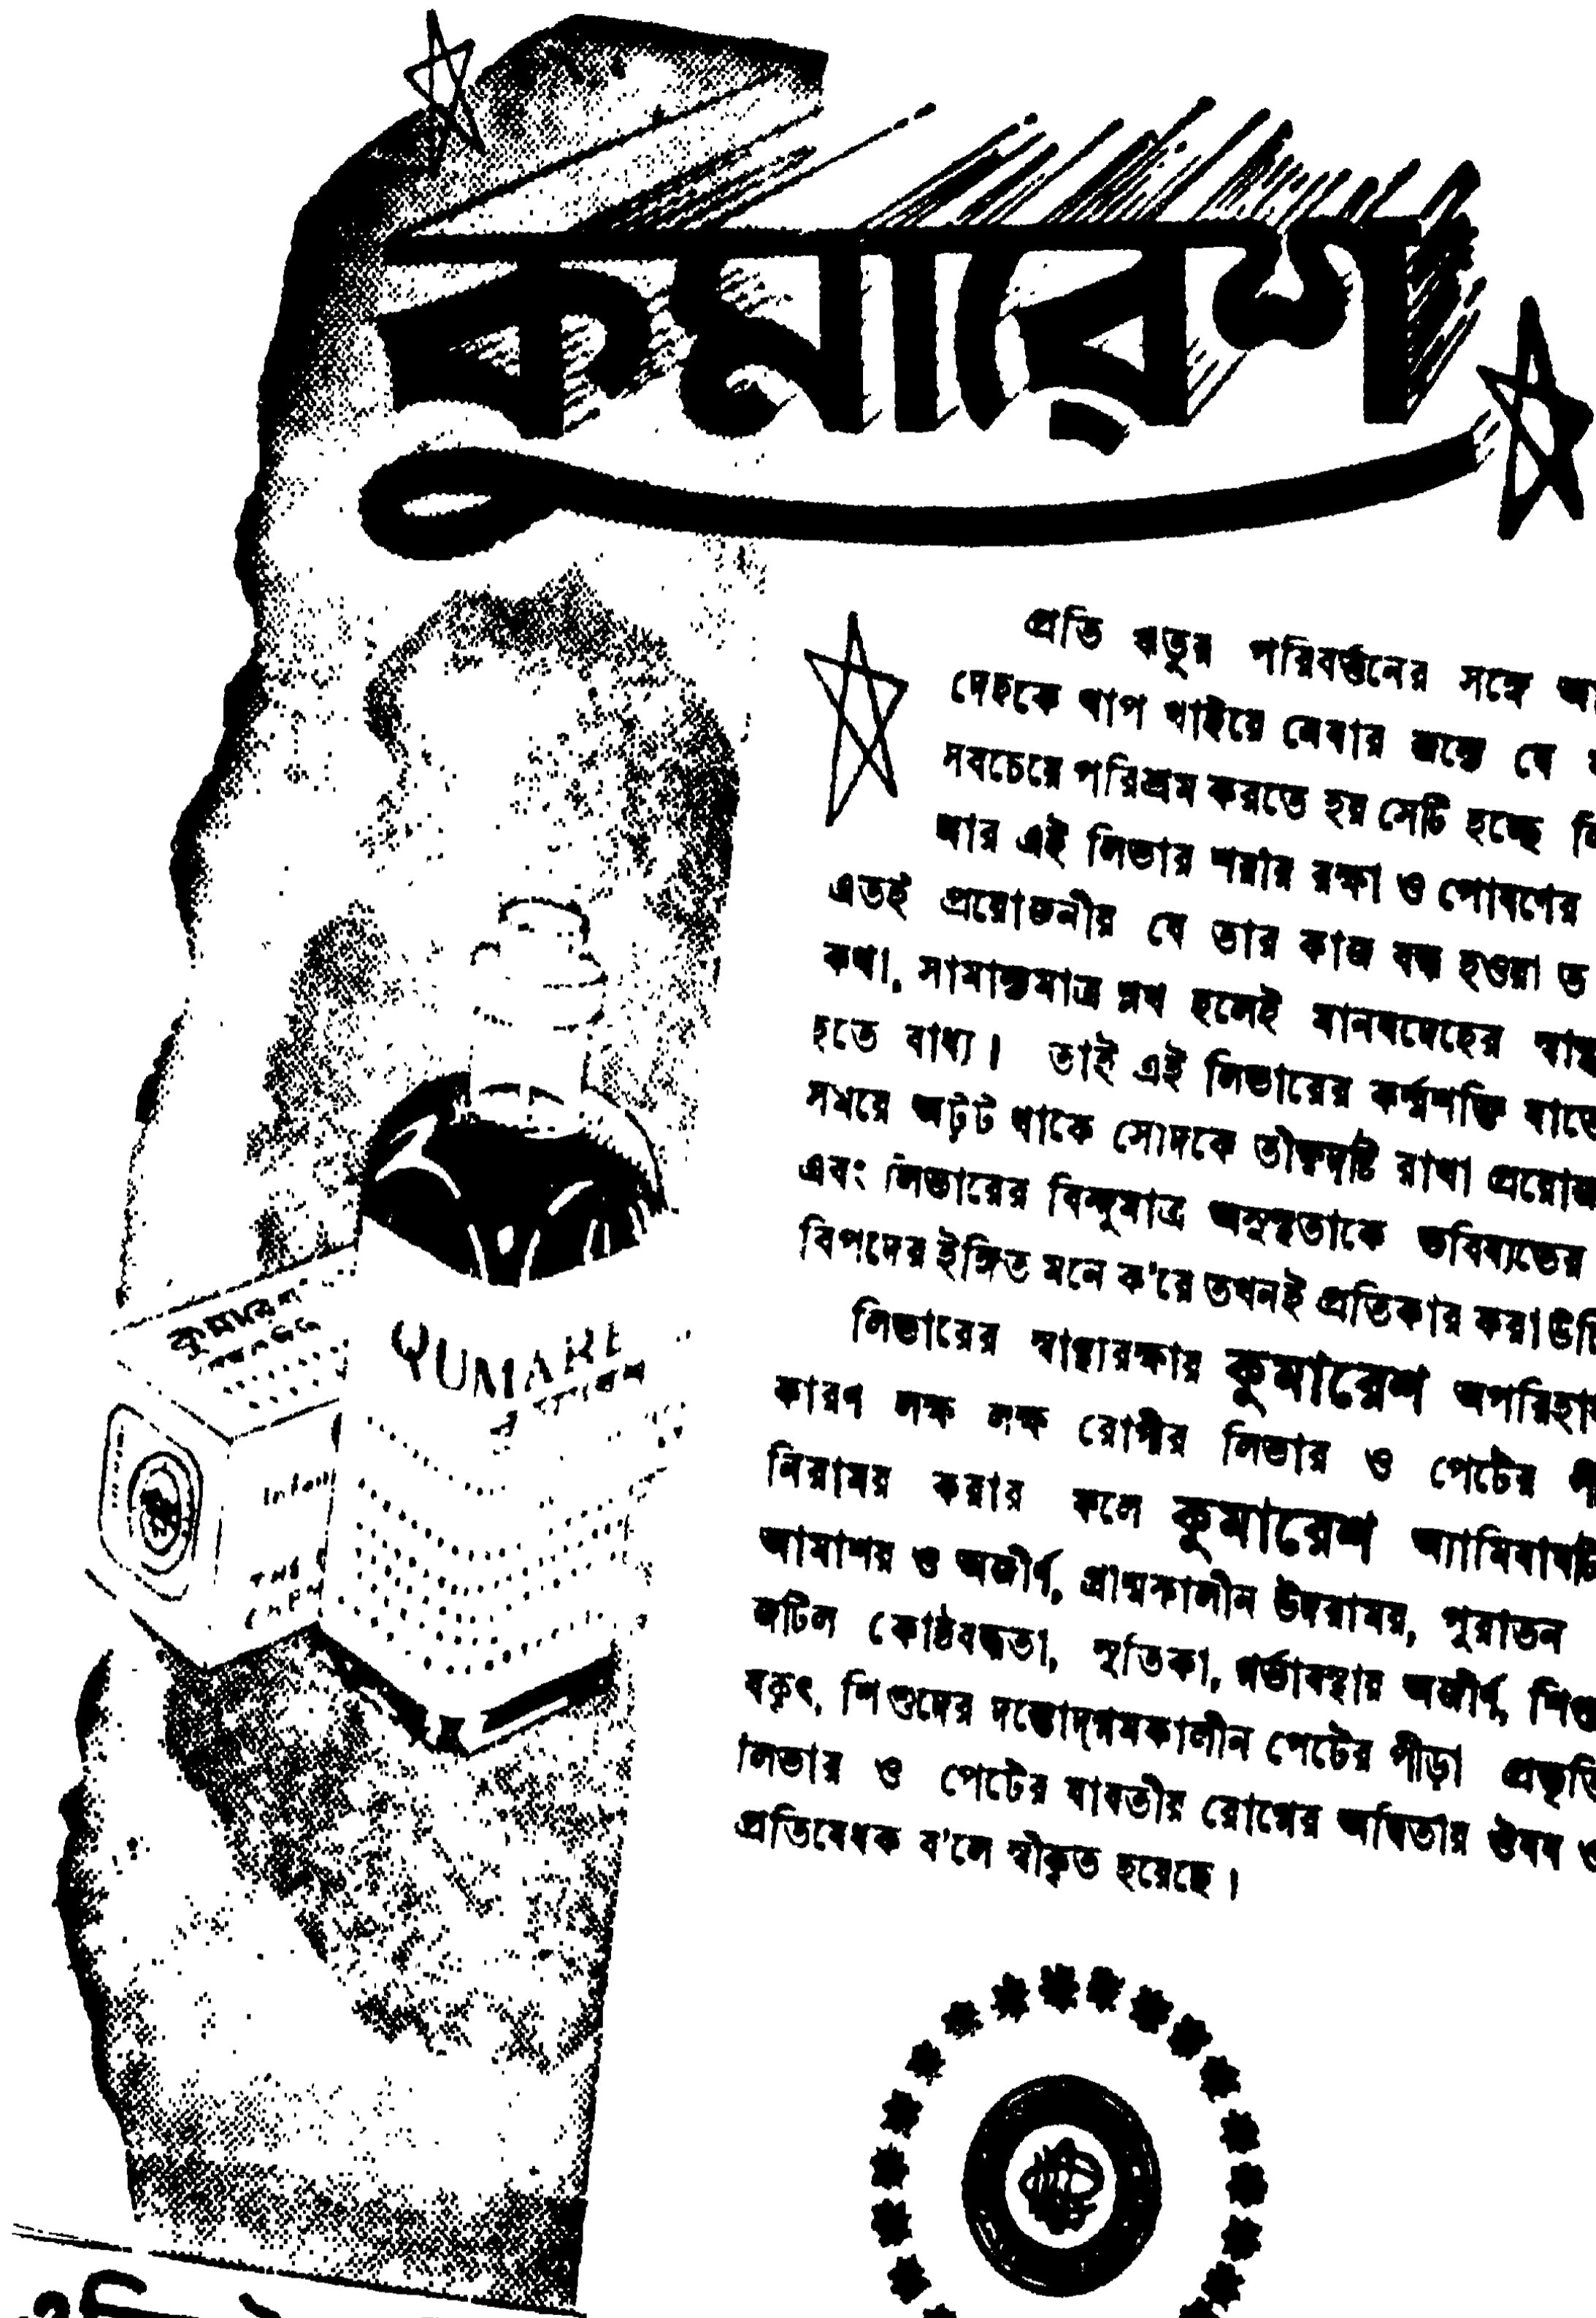 কুমারেশ
প্রতি ঋতুর পরিবর্ত্তনের সঙ্গে
দেহকে খাপ খাইয়ে নেবার জন্যে যে
সবচেয়ে পরিশ্রম করতে হয় সেটি হচ্ছে
আর এই লিভার শরীর রক্ষা ও পোষণের
এতই প্রয়োজনীয় যে তার কাজ বন্ধ হওয়া ত
কথা, সামান্যমাত্র শ্লথ হলেই মানবদেহের
হতে বাধ্য। তাই এই লিভারের কর্ম্মশক্তি যাতে
সময়ে অটুট থাকে সেদিকে তীক্ষ্ণদৃষ্টি রাখা
এবং লিভারের বিন্দুমাত্র অসুস্থতাকে ভবিষ্যতের
বিপদের ইঙ্গিত মনে ক'রে তখনই প্রতিকার করা
লিভারের স্বাস্থ্যরক্ষায় কুমারেশ
কারণ লক্ষ লক্ষ রোগীর লিভার ও পেটের
নিরাময় করার ফলে কুমারেশ
আমাশয় ও অজীর্ণ, গ্রীষ্মকালীন উদরাময়, পুরাতন
জটিল কোষ্ঠবদ্ধতা, সূতিকা, গর্ভাবস্থায় অজীর্ণ,
যকৃৎ, শিশুদের দন্তোদ্গমকালীন পেটের পীড়া প্রভৃতি
লিভার ও পেটের যাবতীয় রোগের অদ্বিতীয় ঔষধ ও
প্রতিষেধক ব'লে স্বীকৃত হয়েছে।
কুমারেশ
QUMARE